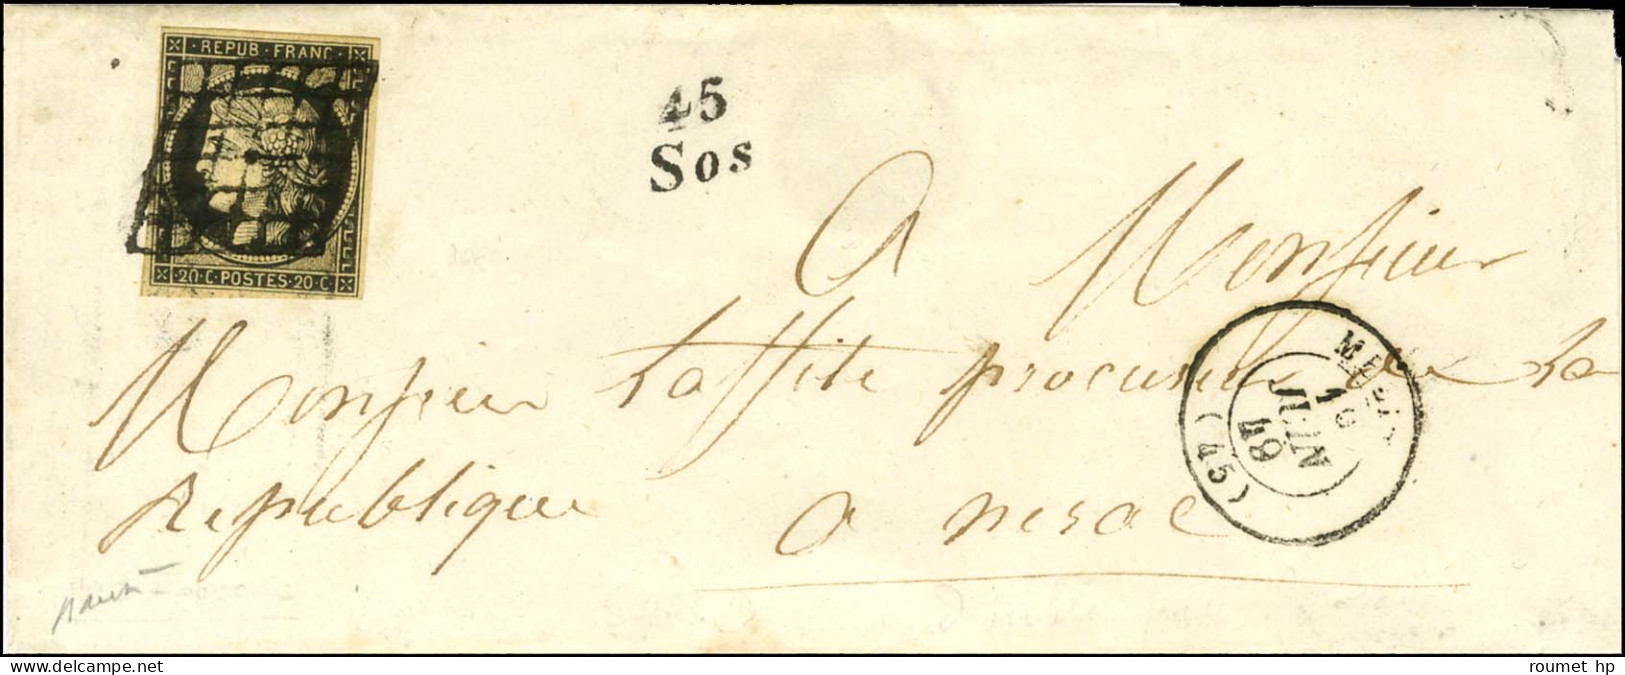 REPUB · FRANC ·
20 · C · POSTES · 20 · C ·
45
Sos
A Monsieur
Monsieur Laffite procureur de la
Republique
a nerac
MEZIN
16
JUIN
49
(45)
roumet hp